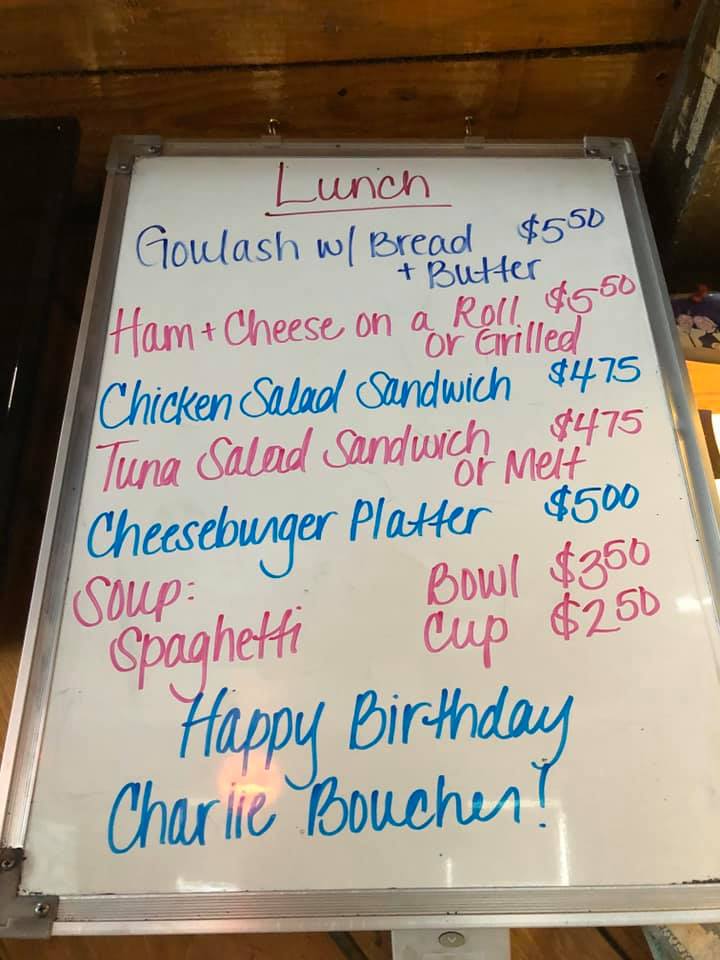 Lunch
Goulash w/ Bread $5.50
+ Butter
Ham + Cheese on a Roll $5.50
or Grilled
Chicken Salad Sandwich $4.75
Tuna Salad Sandwich $4.75
or Melt
Cheeseburger Platter $5.00
Soup: Bowl $3.50
Spaghetti Cup $2.50
Happy Birthday
Charlie Boucher!